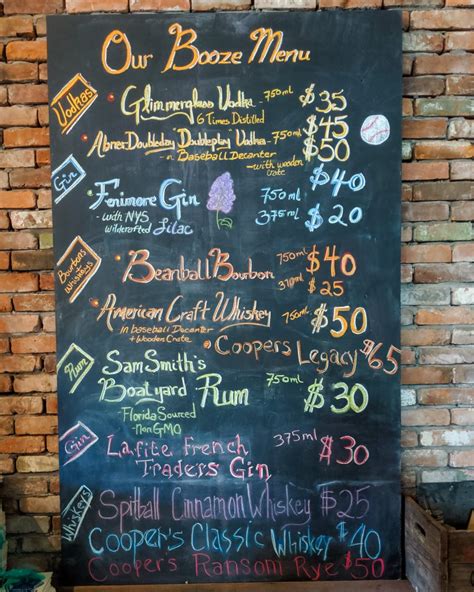 Our Booze Menu
Vodkas
Glimmerglass Vodka - 750ml $35
6 Times Distilled
Abner Doubleday "Doubleplay" Vodka - 750ml $45
- in Baseball Decanter - with wooden crate $50
Gin
Fenimore Gin 750ml $40
- with NYS 375ml $20
Wildcrafted Lilac
Bourbons Whiskeys
Beanball Bourbon 750ml $40
$25
American Craft Whiskey 750ml $50
In baseball Decanter
+ Wooden Crate
Coopers Legacy $65
Rum
Sam Smith's
Boatyard Rum 750ml $30
- Florida Sourced
- Non GMO
Gin
Lafite French 375ml $30
Traders Gin
Whiskeys
Spitball Cinnamon Whiskey $25
Cooper's Classic Whiskey $40
Coopers Ransom Rye $50